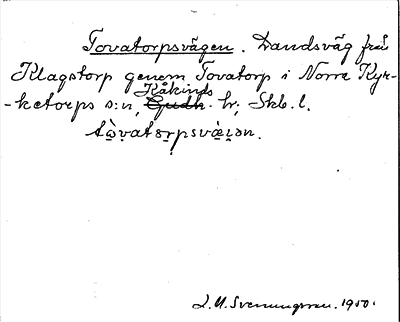 Tovatorpsvägen. Landsväg från
Klagstorp genom Tovatorp i Norra Kyr-
-ketorps s:n, Kåkinds Gudh. hr; Skb. l.
tò̤vatɘrpsvæ̀iɘn.
L. M. Svenungsson. 1950.